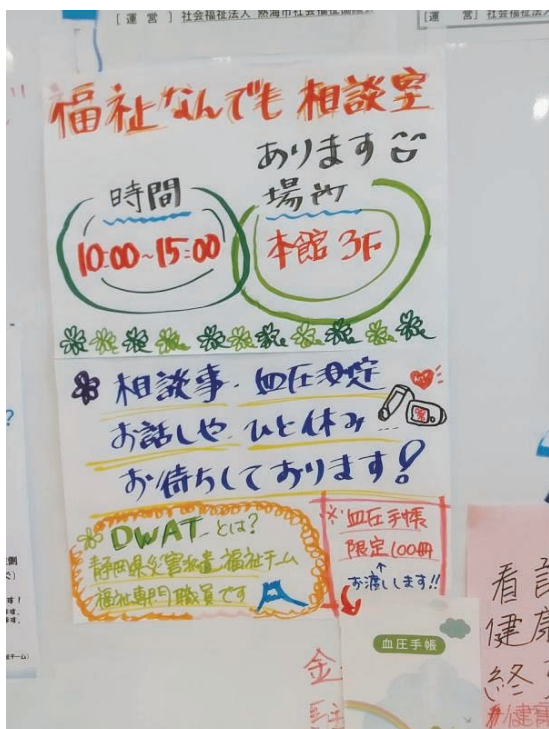 [運営] 社会福祉法人 熱海市社会福祉
[運 営] 社会福祉
福祉なんでも相談室
あります
時間
10:00~15:00
場所
本館 3F
相談事・血圧測定
お話しや ひと休み…
お待ちしております!
DWATとは?
静岡県災害派遣福祉チーム
福祉専門職員です
※血圧手帳
限定100冊
↑
お渡しします!!
血圧手帳
看
健康
終
金